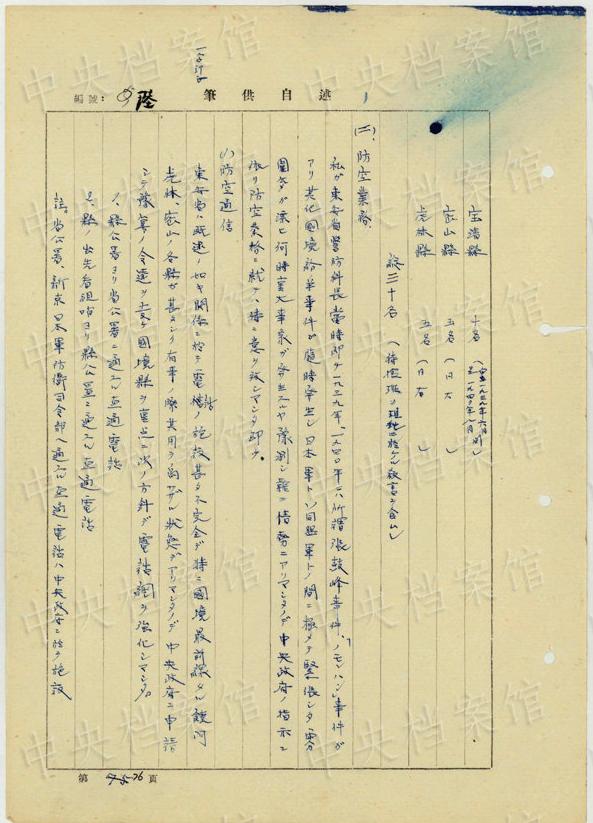 編號：陸
筆供自述
宝清縣　十名
密山縣　五名　（同右）
虎林縣　五名　（同右）
総三十名
(二)、防空業務
私ガ東安省警防科長当時即チ一九三九年、一九四〇年ハ所謂張鼓峰事件、「ノモンハン」事件ガ
アリ其他國境紛争事件ガ随時発生シ日本軍トソ同盟軍トノ間ニ極メテ緊張シタ雰
圍気ガ漂ヒ何時重大事家ガ発生スルヤ豫測シ難イ情勢ニアリマシタノデ中央政府ノ指示ニ
依リ防空業務ニ就テハ特ニ意ヲ致シマシタ即チ。
(1)防空通信
東安省ハ既述ノ如キ関係ニ於テ電話ノ施設甚ダ不完全デ特ニ國境最前線タル饒河
虎林、密山ノ各縣ガ甚シク有事ノ際其用ヲ為サザル状態デアリマシタノデ中央政府ニ申請
シテ豫算ノ令達ヲ受ケ國境縣ヲ重点ニ次ノ方針デ電話網ヲ強化シマシタ。
1、縣公署ヨリ省公署ニ通ズル直通電話
2、縣ノ出先看視哨ヨリ縣公署ニ通ズル直通電話
註、省公署、新京日本軍防衛司令部ヘ通ズル直通電話ハ中央政府ニ於テ施設
第 76 頁
中央档案馆